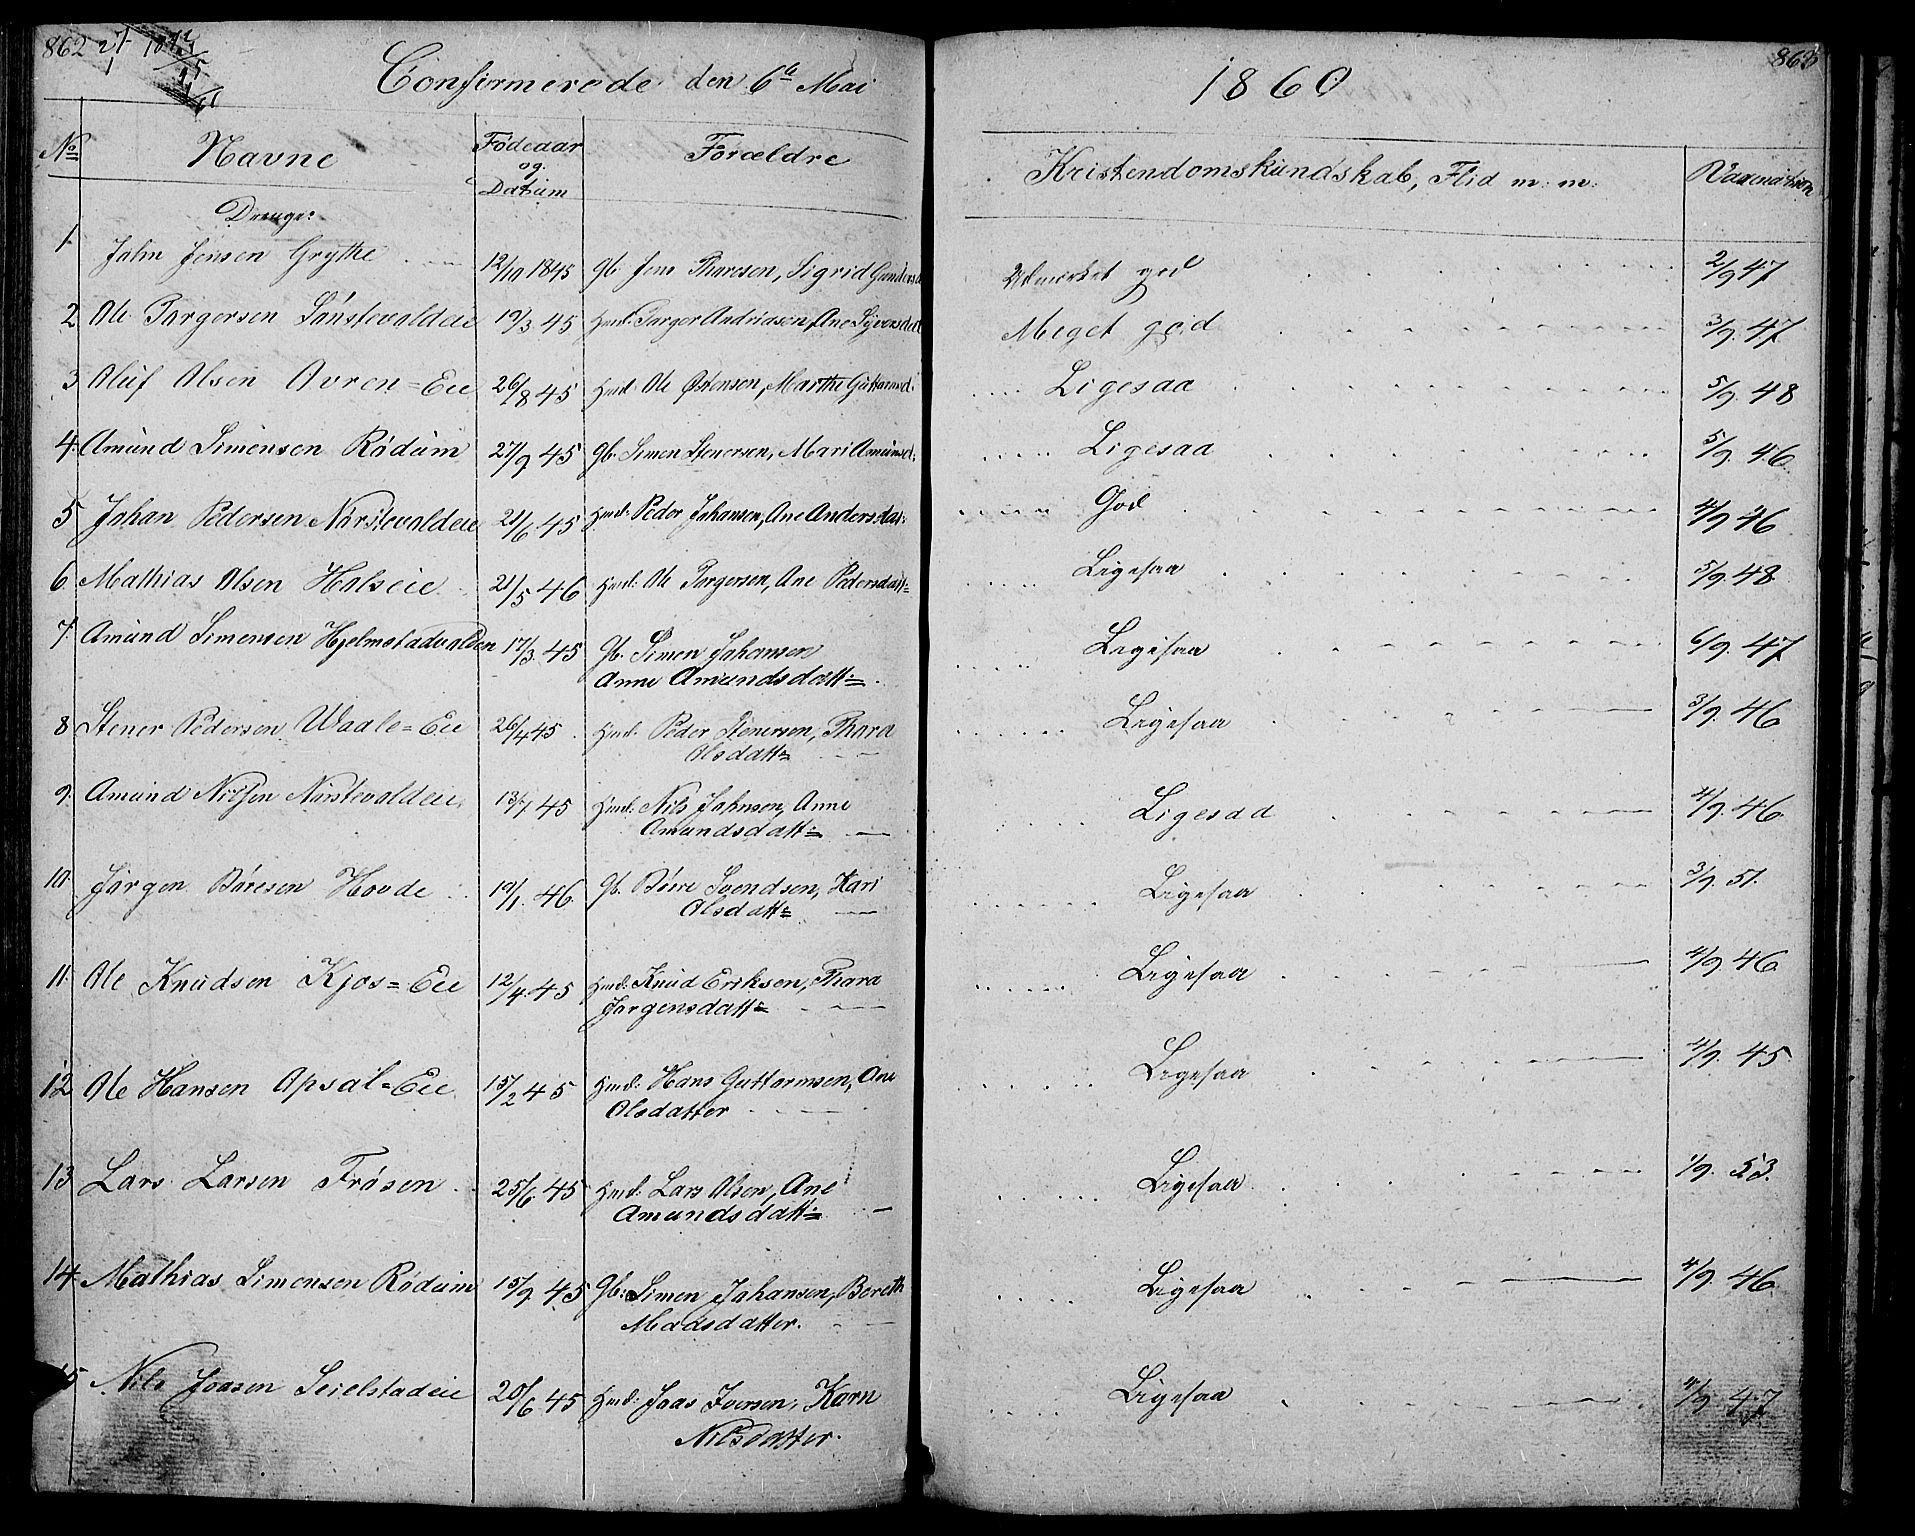 862
863
Confirmerede den 6te Mai 1860
No Navne Fødeaar og Datum Forældre Kristendomskundskab, Flid m: m: Vaccination
Drenge:
1. Jahn Jensen Grythe 12/10 1845 Gb. Jens Tharesen, Sigrid Gundersd Udmerket god 2/9 47
2 Ole Torgersen Sønstevoldeie 19/3 45 Hmd: Torger Andriasen, Ane Meget god 3/9. 47
3 Oluf Olsen Avren=Eie 26/8 45 Hmd. Ole Østensen, Marthe Guttormsd. Ligesaa 5/9. 48
4. Amund Simensen Rödum 27/9 45 Gb. Simen Stenersen, Mari Amunsd: Ligesaa 5/9. 46
5 Johan Pedersen Nörstevoldeie 21/6 45 Hmd: Peder Johansen, Ane Andersdat: God 4/9 46
6. Mathias Olsen Holseie 21/5 46 Hmd: Ole Torgersen, Ane Pedersdatt= Ligesaa 5/9 48
7. Amund Simensen Hjelmstadvolden 17/3. 45 Gb. Simen Johansen Ligesaa 6/9. 47
Anne Amundsdatt:=
8 Stener Pedersen Waale=Eie 26/4 45 Hmd: Peder Stenersen, Thara Ligesaa 3/9. 46
Olsdatt=
9. Amund Nilsen Nörstevoldeie 45 Hmd: Nils Jahnsen, Anne Ligesaa 4/9. 46
Amundsdatt:=
10. Jörgen Böresen Hovde 19/1. 46 Gb. Börre Svendsen, Kari Ligesaa 3/9. 51.
Olsdatt=
11. Ole Knudsen Kjos=Eie 12/4. 45 Hmd: Knud Eriksen, Thara Ligesaa 4/9 46
Jörgensdatt=
12 Ole Hansen Opsal=Eie 15/2 45 Hmd: Hans Guttormsen, Ane Ligesaa 4/9. 45
Olsdatter
13 Lars Larsen Frösen 25/6 45 Hmd: Lars Olsen, Ane Ligesaa 1/9. 53.
Amundsdatt:=
14. Mathias Simensen Rödum 15/9. 45 Gb: Simen Johansen, Bereth Ligesaa 4/9. 46
Madsdatter.
15 Nils Joasen Seielstadeie 20/6 45 Hmd: Joas Iversen, Karn Ligesaa 4/9 47
Nilsdatter.